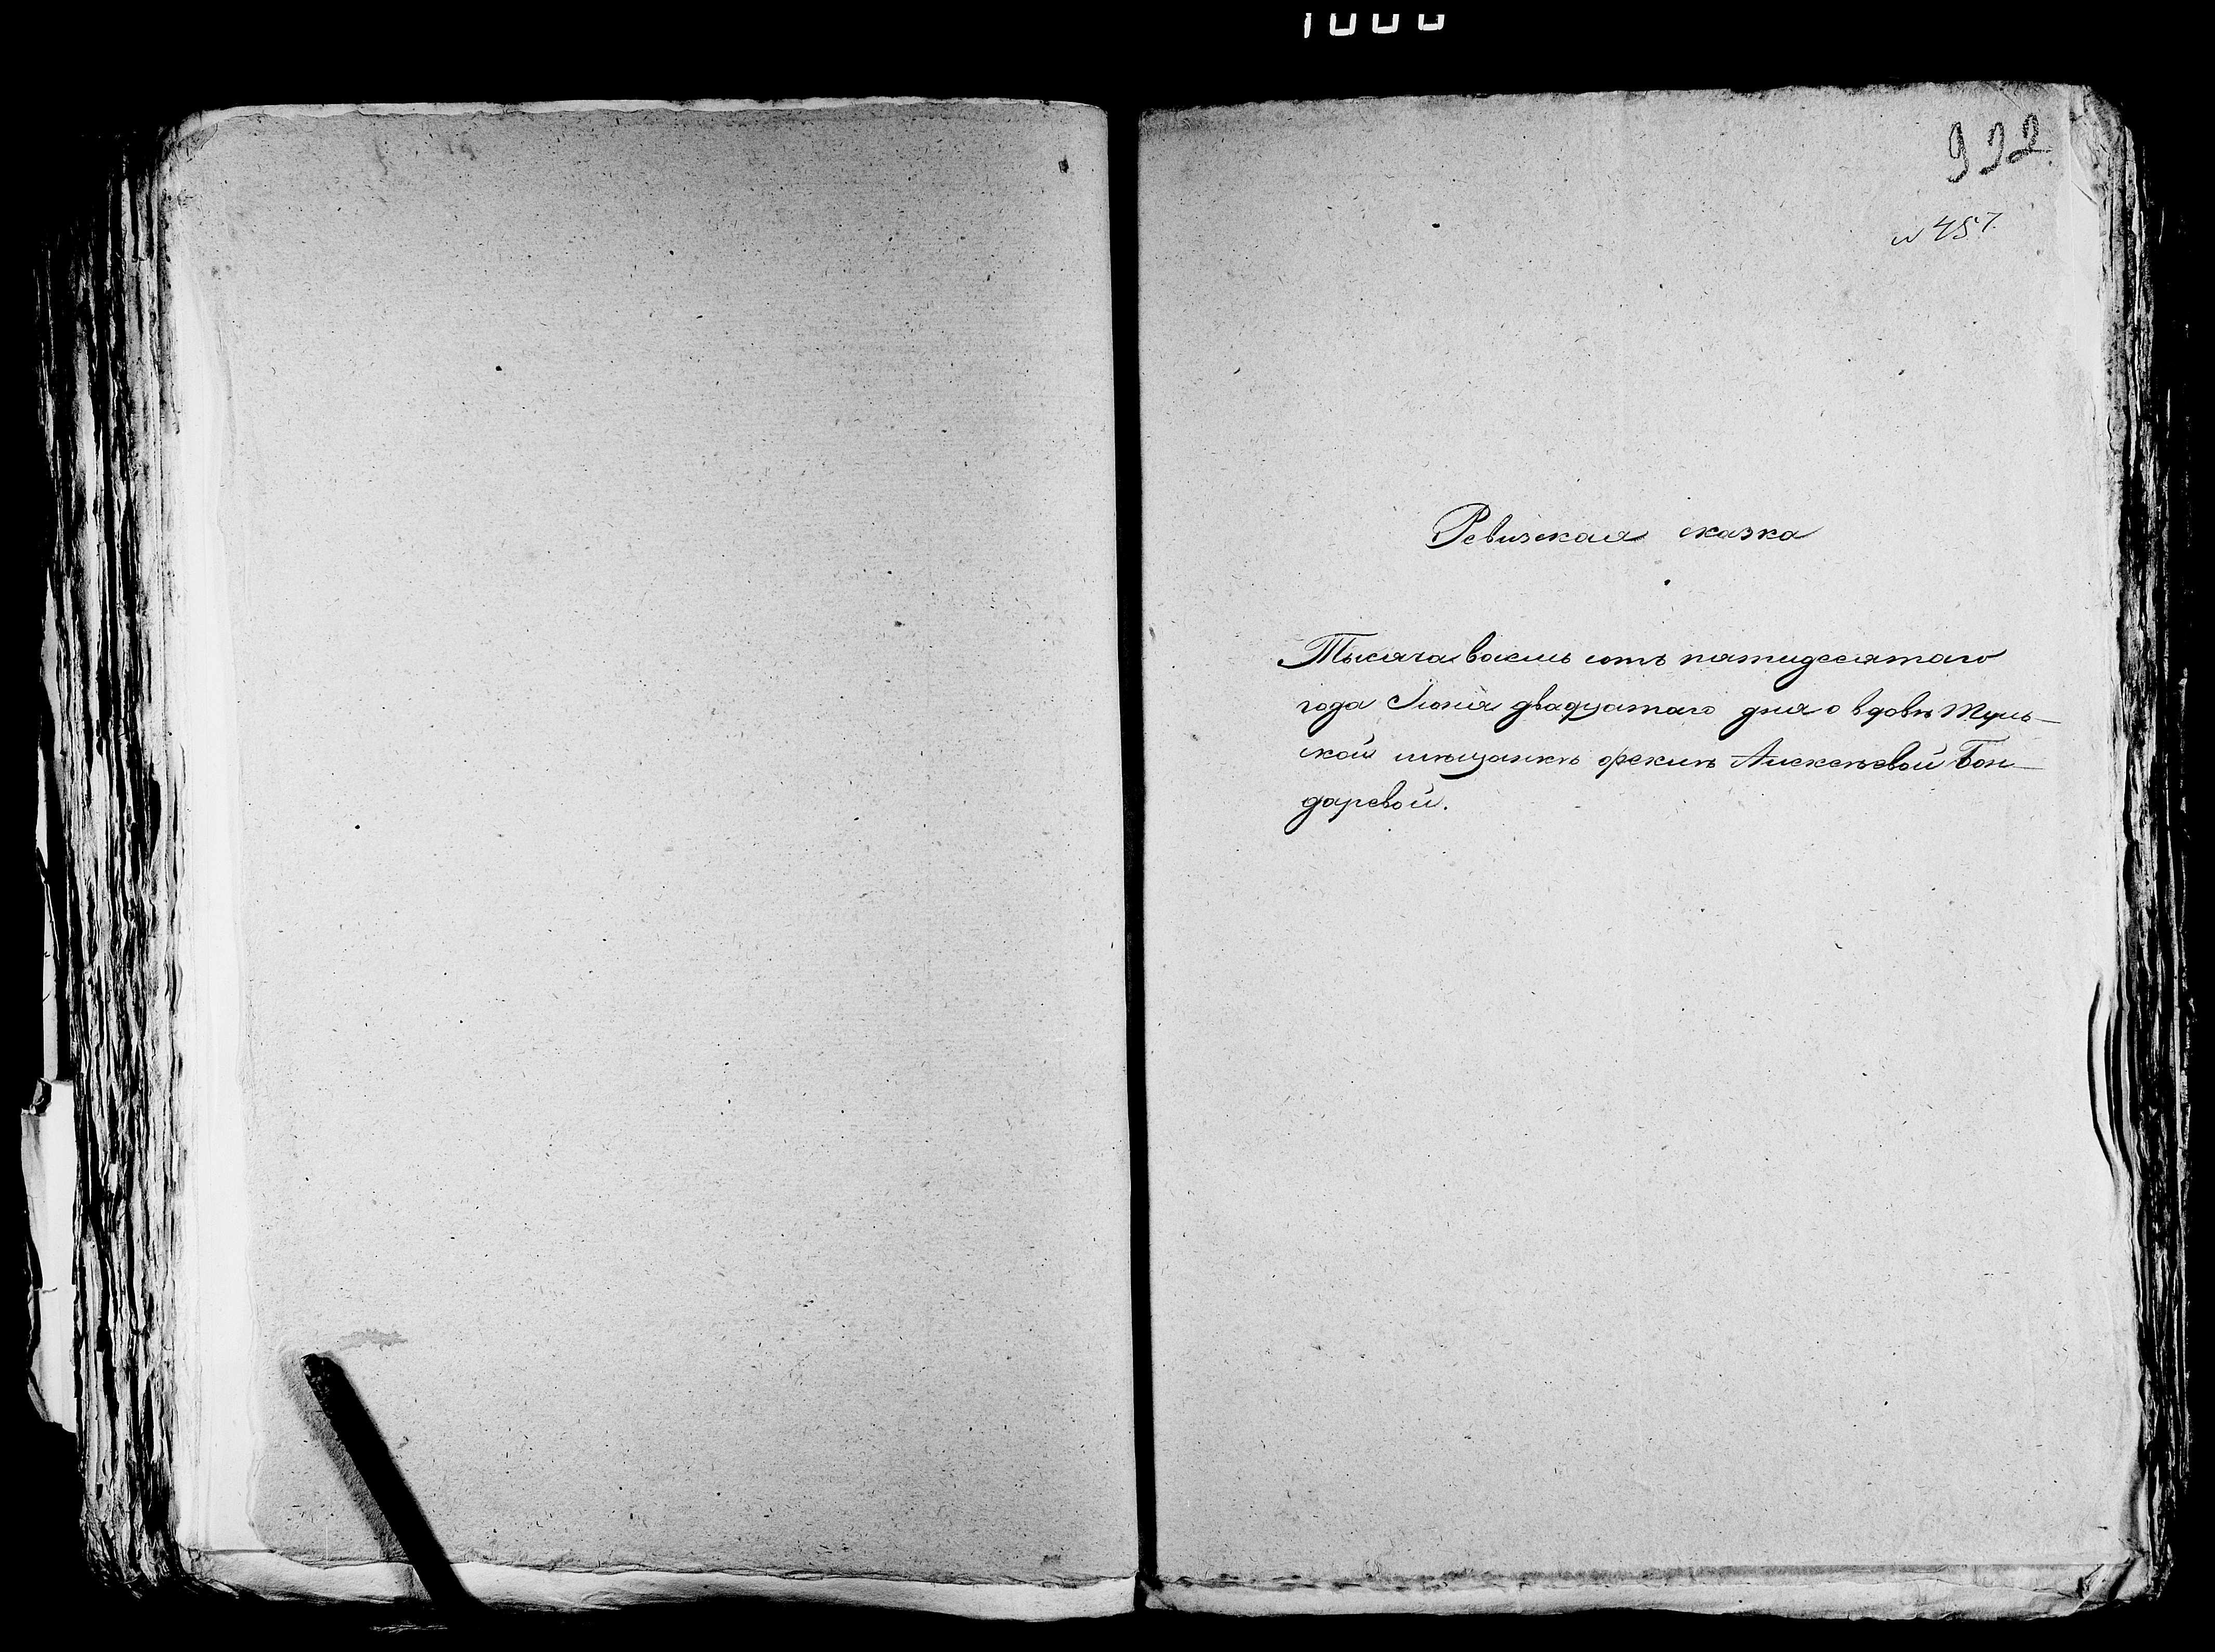 922.
№ 457.
Ревизская сказка
Тысяча восемь сотъ пятидесятаго
года Июня двадцатаго дня о вдовѣ Туль-
ской мѣщанкѣ Фекиѣ Алексѣевой Бон-
даревой.